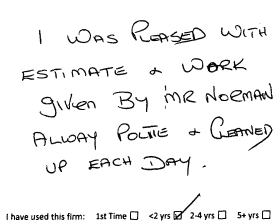 I WAS PLEASED WITH
ESTIMATE & WORK
GIVEN BY MR NORMAN
ALWAY POLTIE & CLEANED
UP EACH DAY.
I have used this firm: 1st Time ☐ <2 yrs ☑ 2-4 yrs ☐ 5+ yrs ☐